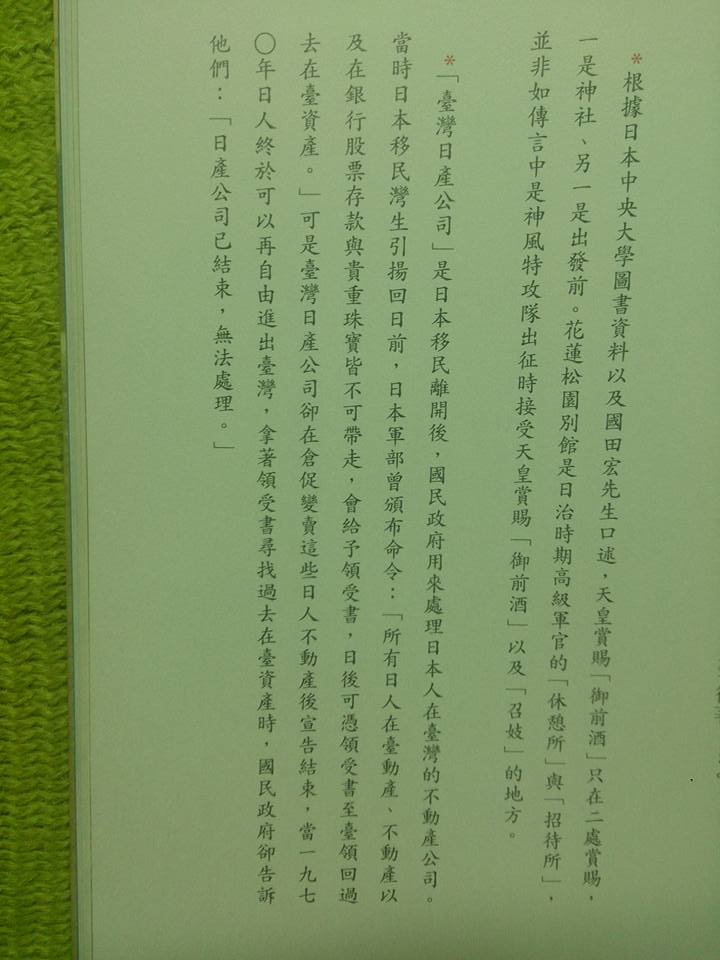 *根據日本中央大學圖書資料以及國田宏先生口述，天皇賞賜「御前酒」只在二處賞賜，
一是神社、另一是出發前。花蓮松園別館是日治時期高級軍官的「休憩所」與「招待所」，
並非如傳言中是神風特攻隊出征時接受天皇賞賜「御前酒」以及「召妓」的地方。
*「臺灣日產公司」是日本移民離開後，國民政府用來處理日本人在臺灣的不動產公司。
當時日本移民灣生引揚回日前，日本軍部曾頒布命令：「所有日人在臺動產、不動產以
及在銀行股票存款與貴重珠寶皆不可帶走，會給予領受書，日後可憑領受書至臺領回過
去在臺資產。」可是臺灣日產公司卻在倉促變賣這些日人不動產後宣告結束，當一九七
〇年日人終於可以再自由進出臺灣，拿著領受書尋找過去在臺資產時，國民政府卻告訴
他們：「日產公司已結束，無法處理。」